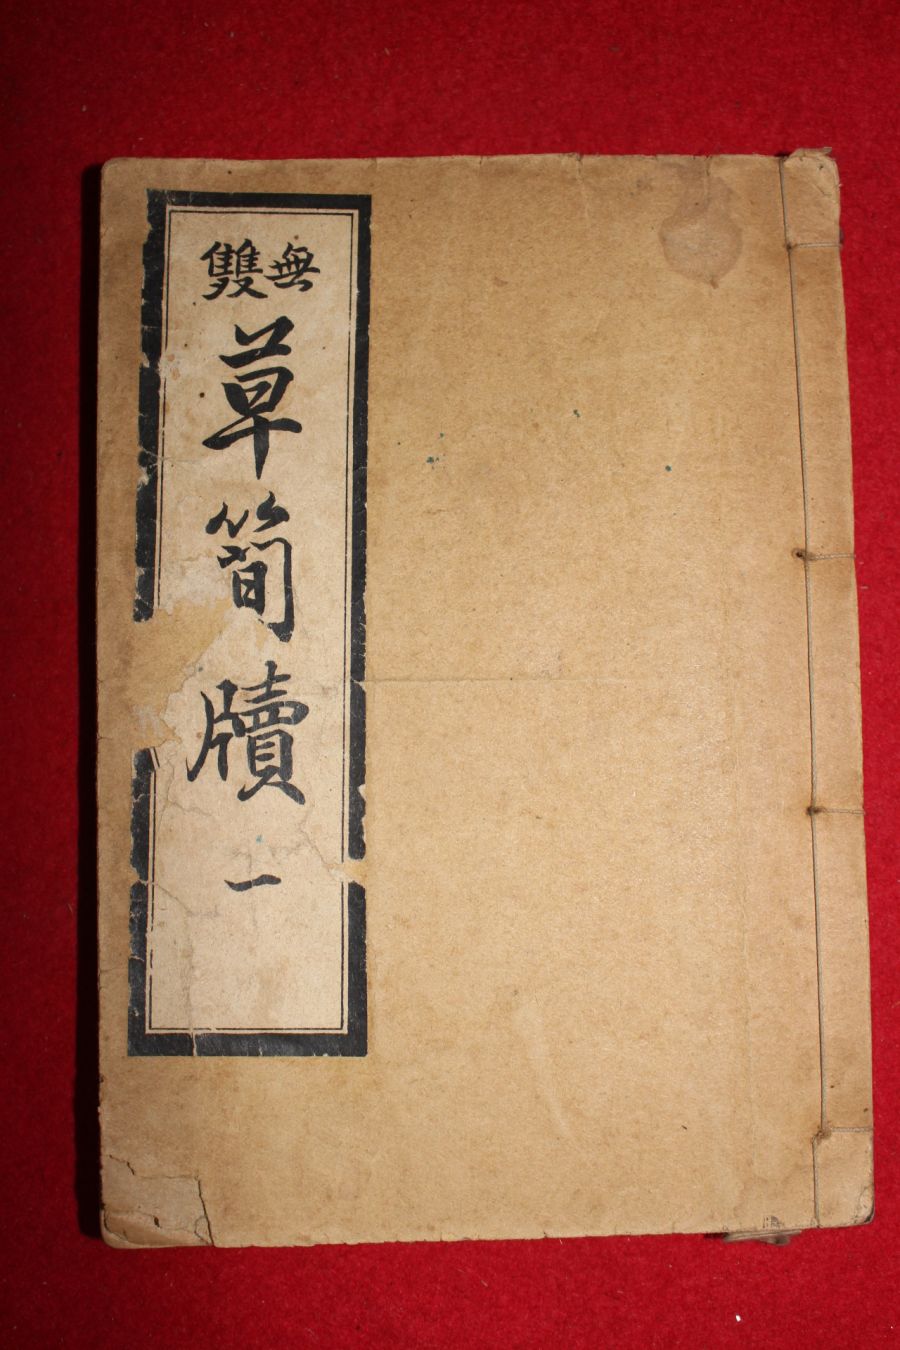 無雙
草簡牘 一